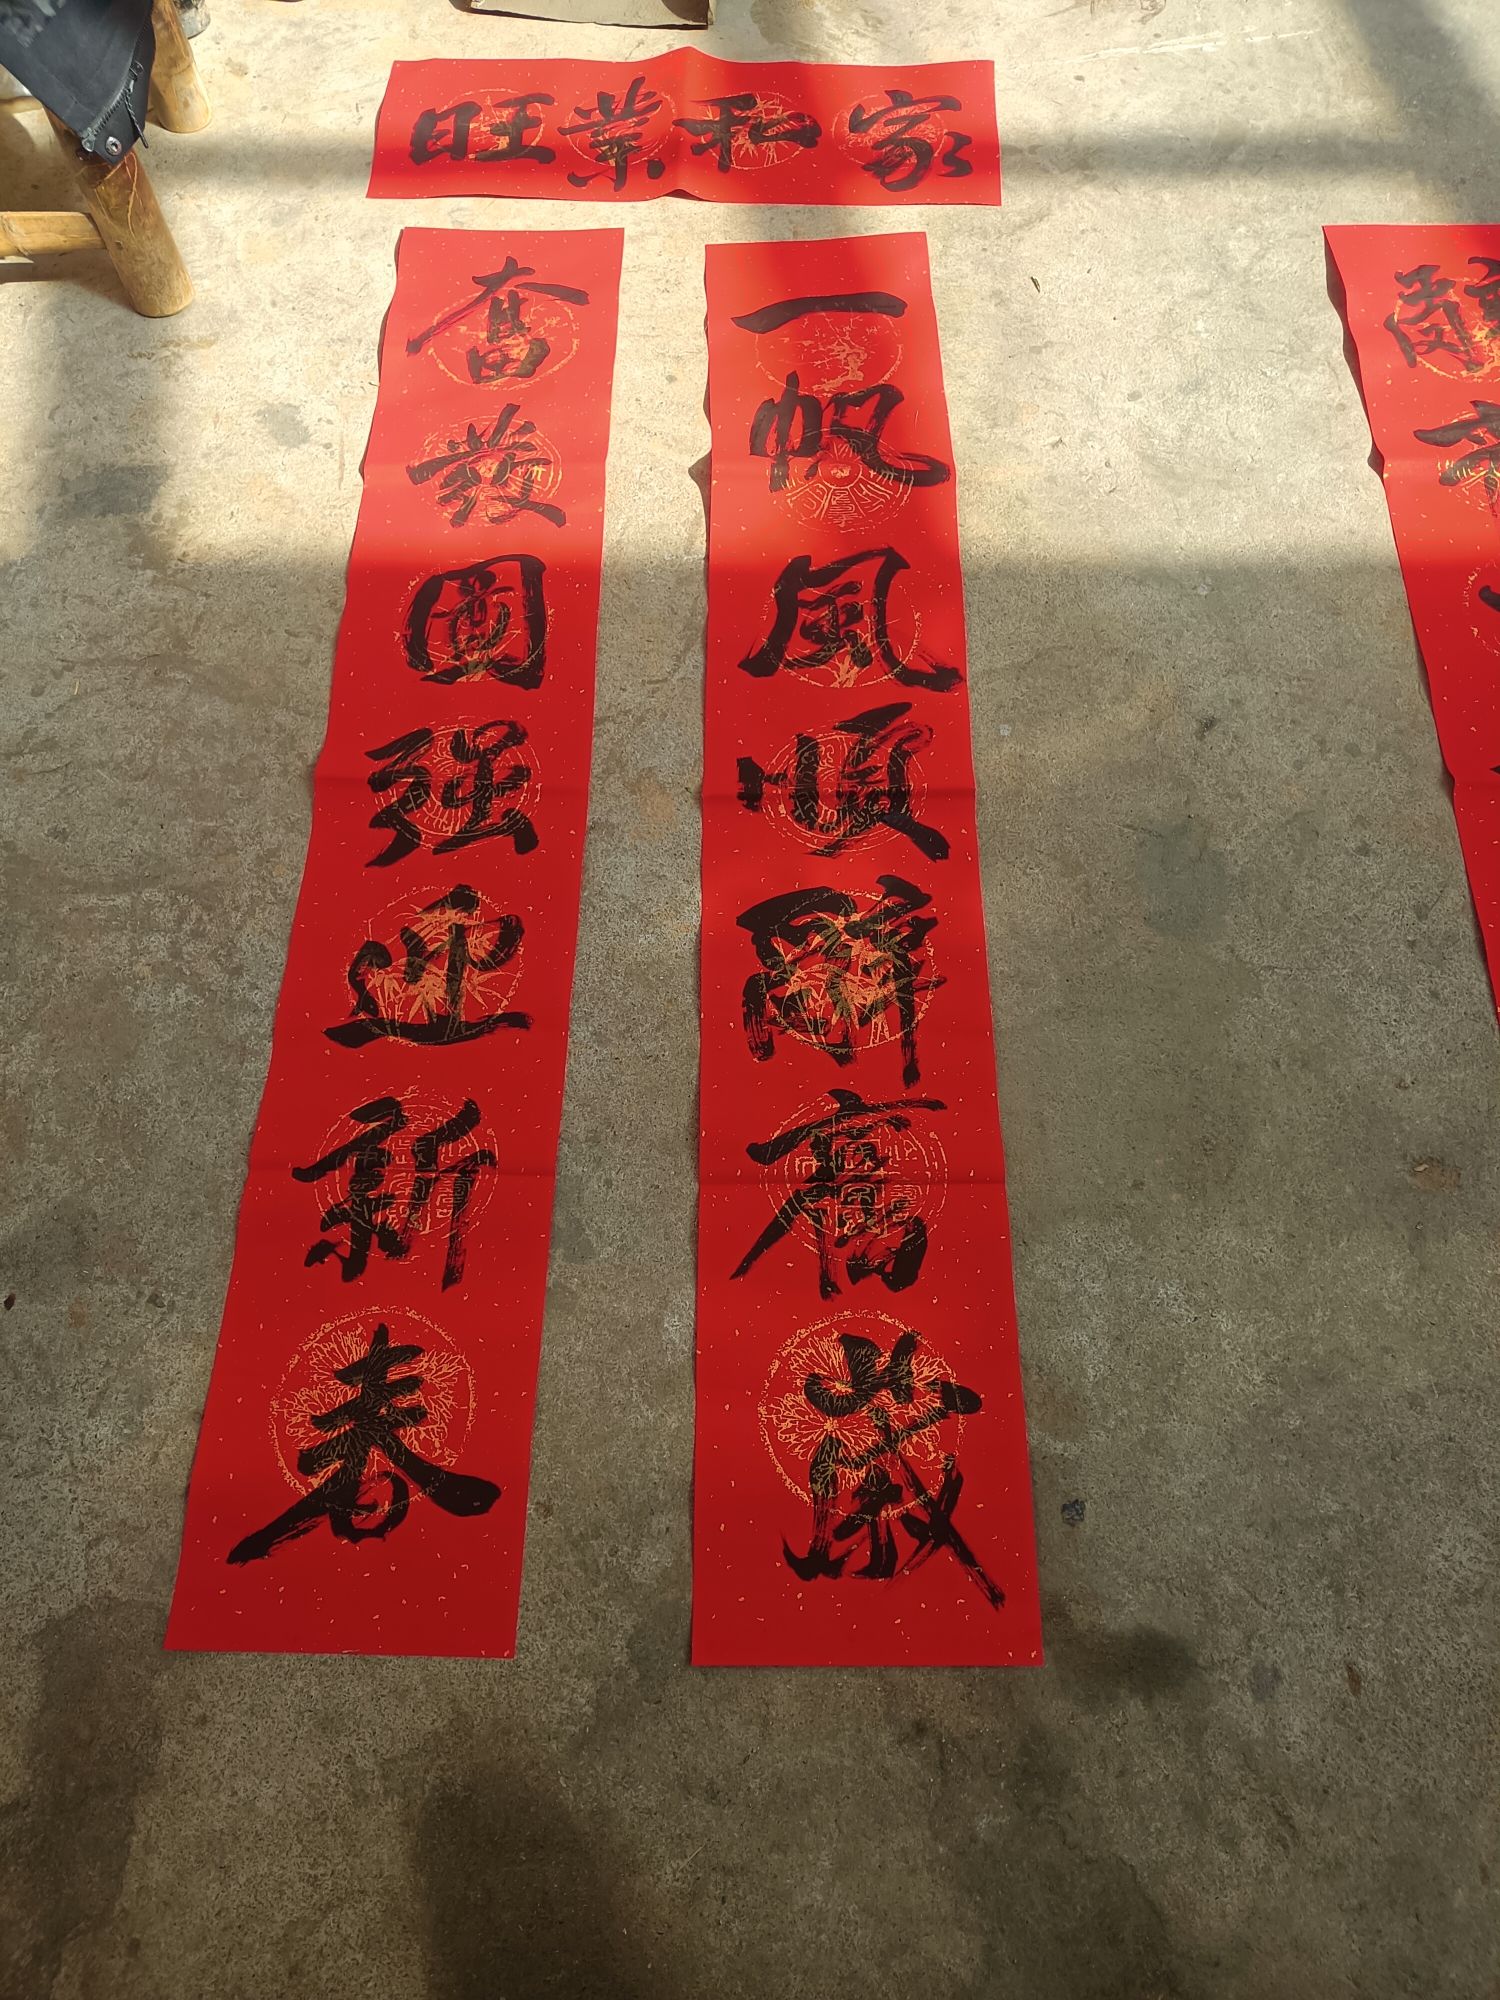 家和業旺
一帆風順辭舊歲
奋發圖强迎新春